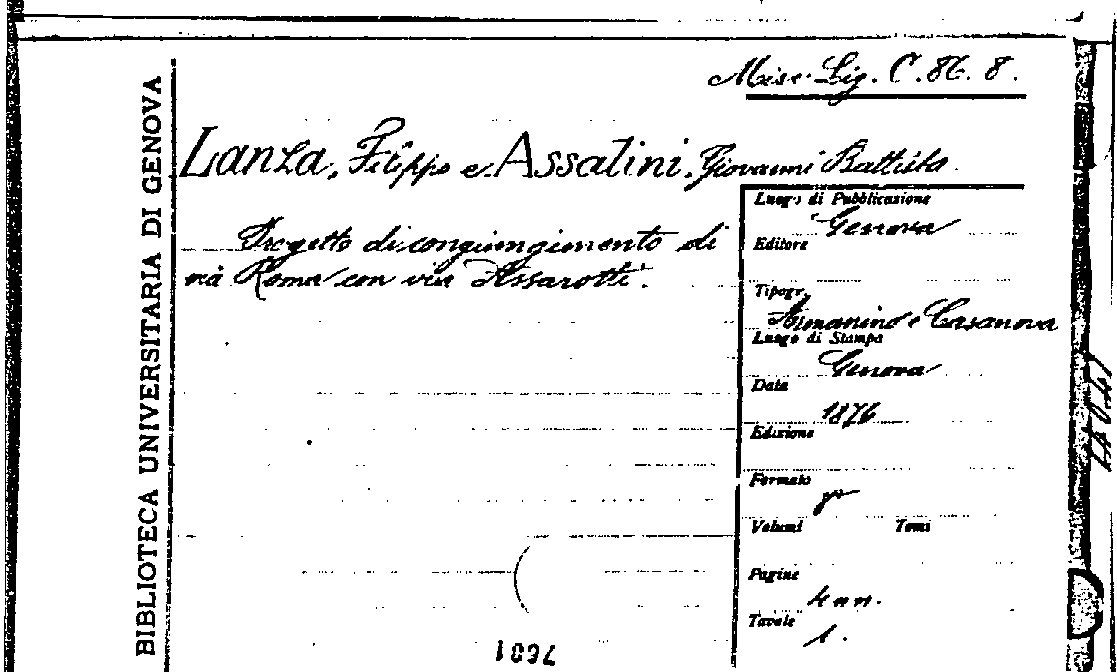 Misc. Lig. C. 86. 8.
BIBLIOTECA UNIVERSITARIA DI GENOVA
Lanza, Filippo e Assalini, Giovanni Battista.
Progetto di congiungimento di
via Roma con via Assarotti.
Luogo di Pubblicazione
Genova
Editore
Tipogr.
Armanino e Casanova
Luogo di Stampa
Genova
Data
1876
Edizione
Formato
8°
Volumi Tomi
Pagine
4 nn.
Tavole
1.